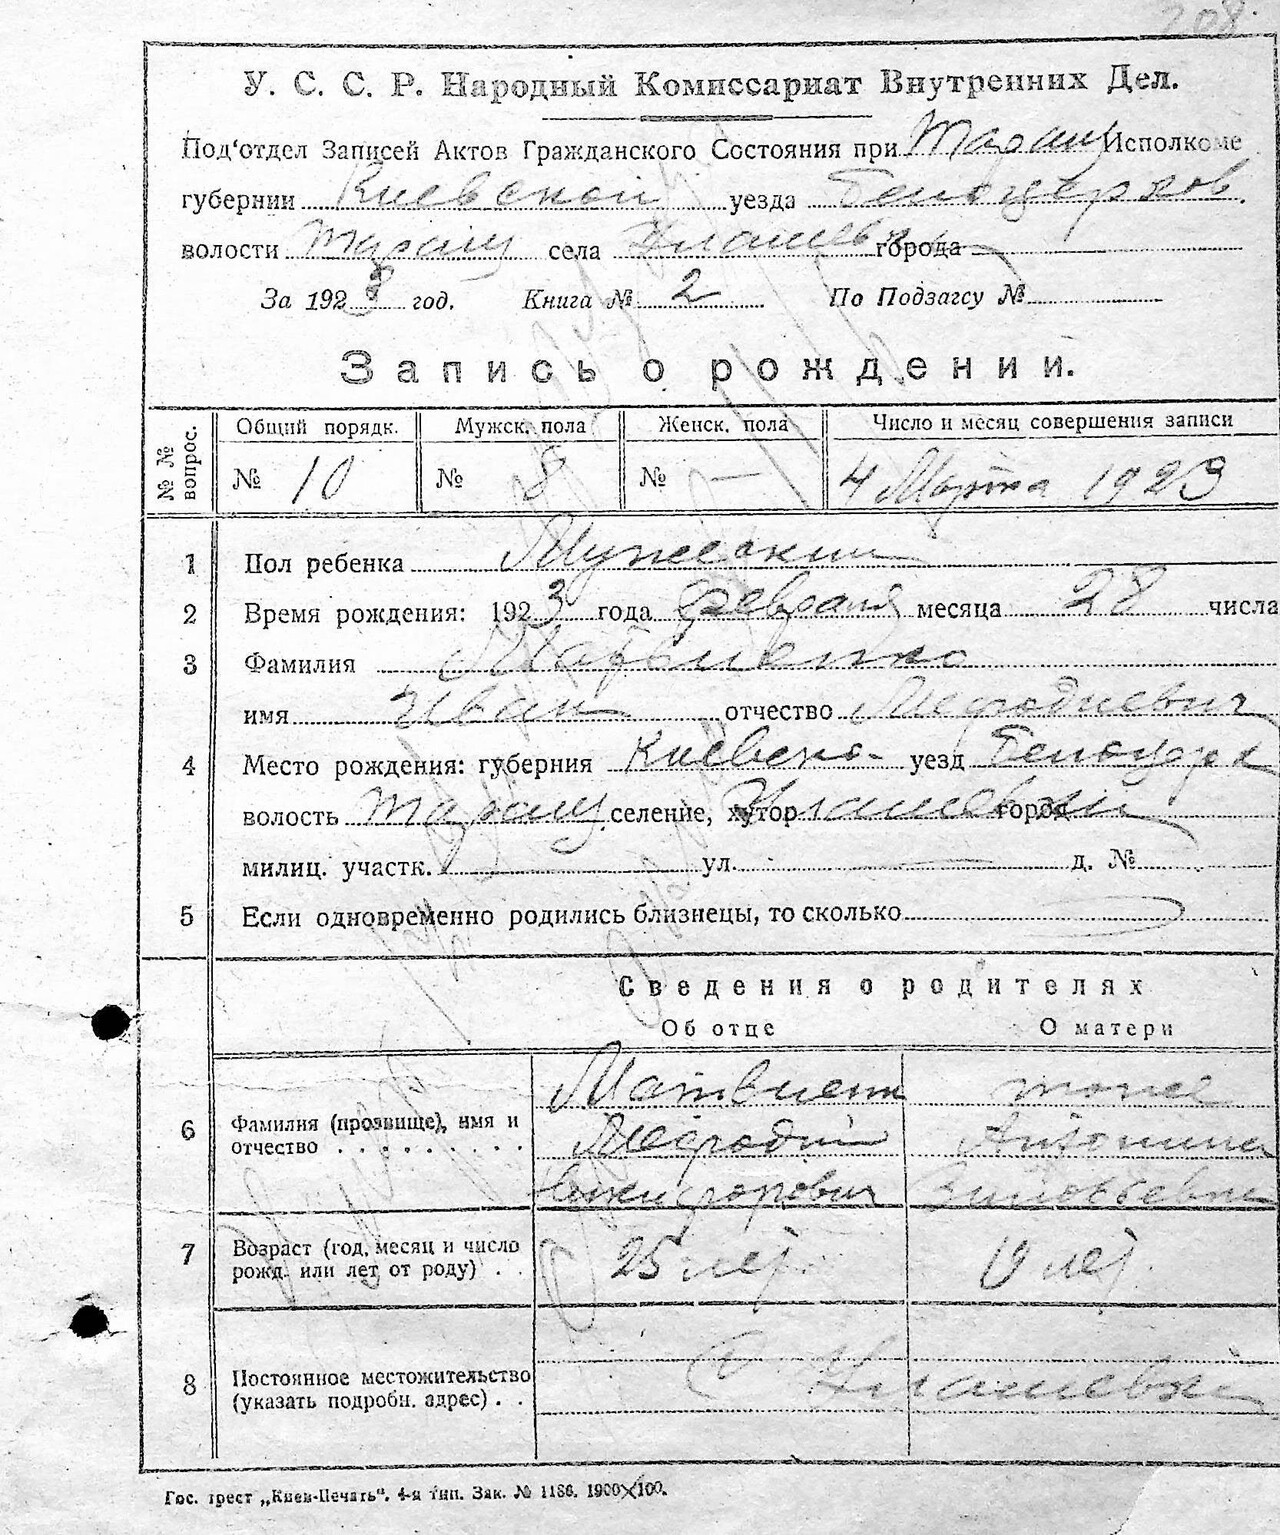 208.
У. С. С. Р. Народный Комиссариат Внутренних Дел.
Под‘отдел Записей Актов Гражданского Состояния при Таращ Исполкоме
губернии Киевской уезда Белоцерков.
волости Таращ села города
За 1923 год. Книга № 2 По Подзагсу №
Запись о рождении.
№ № вопрос. Общий порядк. Мужск. пола Женск. пола Число и месяц совершения записи
№ 10 № 8 № — 4 Марта 1923
1 Пол ребенка Мужеский
2 Время рождения: 1923 года февраля месяца 28 числа
3 Фамилия Матвиенко
имя Иван отчество Мефодиевич
4 Место рождения: губерния Киевско- уезд Белоцерк
волость Таращ селение, хутор город
милиц. участк. ул. д. №
5 Если одновременно родились близнецы, то сколько
Сведения о родителях
Об отце О матери
Матвиенк тоже
6 Фамилия (прозвище), имя и
отчество . . . . . . . . . Мефодий Антонина
Зиновьевна
7 Возраст (год, месяц и число
рожд. или лет от роду) . . 25 лет лет
8 Постоянное местожительство
(указать подробн. адрес) . .
Гос. трест „Киев-Печать“. 4-я тип. Зак. № 1186. 1900×100.